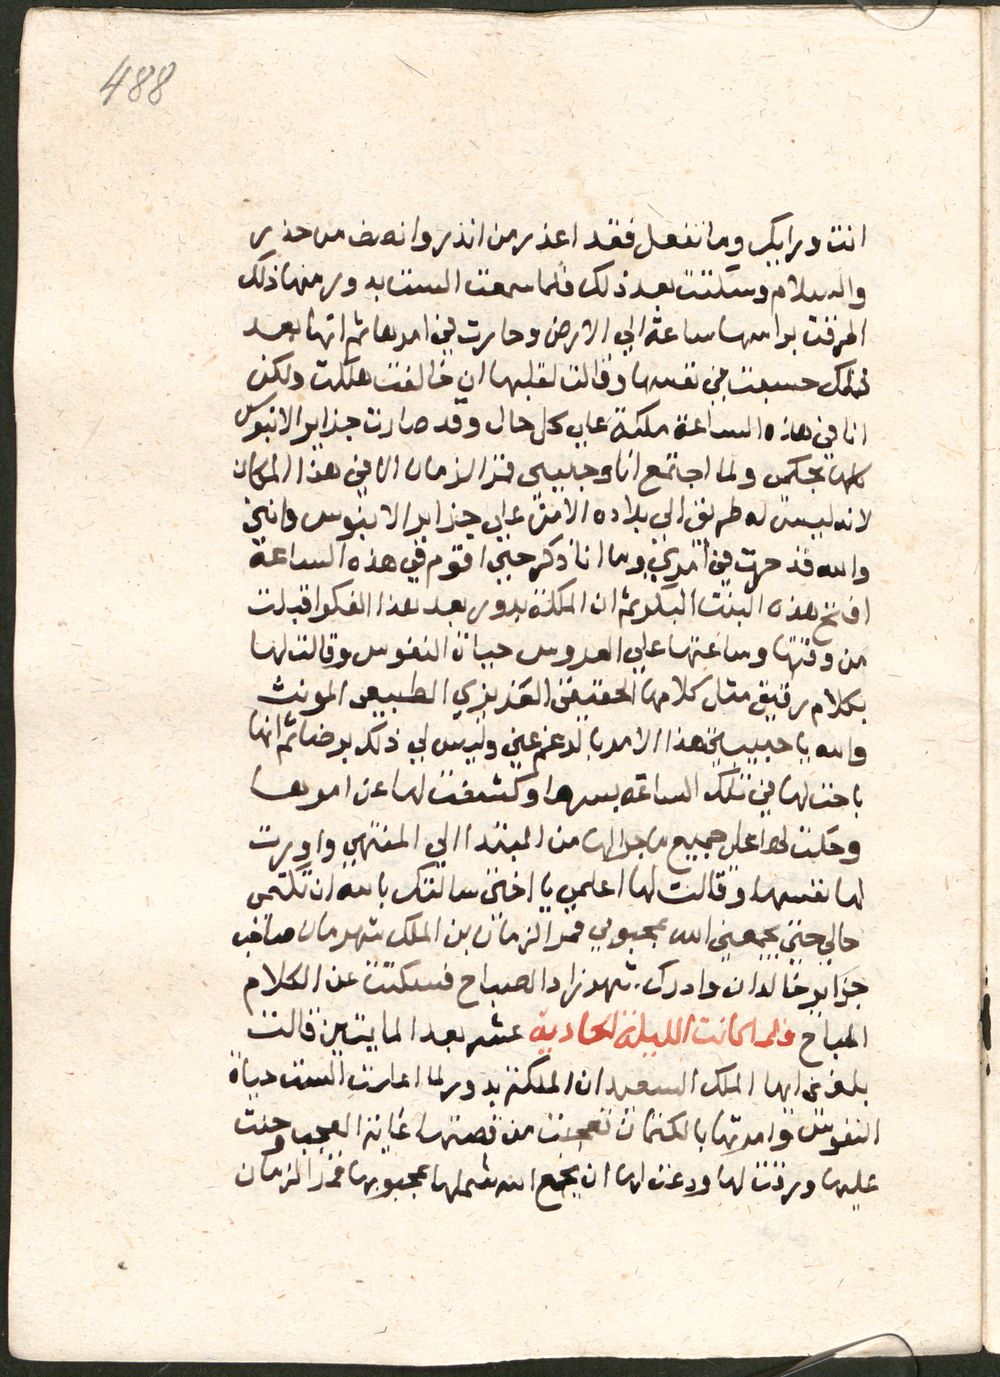 488
انت ورايك وما تفعل فقد اعذر من انذر وانهض من حذر
والسلام وسكتت بعد ذلك فلما سمعت الست بدور منها ذلك
اطرقت براسها ساعة الي الارض وحارت في امرها ثم انها بعد
ذلك حسبت في نفسها وقالت لقلبها ان خالفت هلكت ولكن
انا في هذه الساعة ملكة علي كل حال وقد صارت جزاير الابنوس
كلها بحكمي ولما اجتمع انا وحبيبي قمر الزمان الا في هذا المكان
لانه ليس له طريق الي بلاده الا من علي جزاير الابنوس وانني
والله قد حرت في امري وما انا ذكر حتي اقوم في هذه الساعة
افتح هذه البنت البكر ثم ان الملكة بدور بعد هذا الفكر اقبلت
من وقتها وساعتها علي العروس حياة النفوس وقالت لها
بكلام رقيق مثل كلامها الحقيقي الغريزي الطبيعي المونث
والله يا حبيبتي هذا الامر بالرغم عني وليس لي ذلك برضا ثم انها
باحت لها في تلك الساعة بسرها وكشفت لها عن امورها
وحكت لها علي جميع ما جرا لها من المبتدا الي المنتهي واورت
لها نفسها وقالت لها اعلمي يا اختي سالتك بالله ان تكتمي
حالي حتي يجمعني الله بمحبوبي قمر الزمان بن الملك شهرمان صاحب
جزاير خالدان وادرك شهرزاد الصباح فسكتت عن الكلام
المباح فلما كانت الليلة الحادية عشر بعد المايتين قالت
بلغني ايها الملك السعيد ان الملكة بدور لما اعلرت الست حياة
النفوس وامرتها بالكتمان تعجبت من قصتها غاية العجب وحنت
عليها ورقت لها ودعت لها ان يجمع الله شملها بمحبوبها قمر الزمان